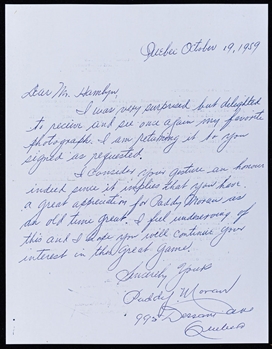 Quebec October 19, 1959
Dear Mr. Hamlyn,
I was very surprised but delighted
to receive and see once again my favorite
photograph. I am returning it to you
signed as requested.
I consider your gesture an honour
indeed since it implies that you have
a great appreciation for Paddy Moran as
an old time great. I feel undeserving of
this and I hope you will continue your
interest in this great game.
Sincerely Yours
Paddy Moran
995
Quebec